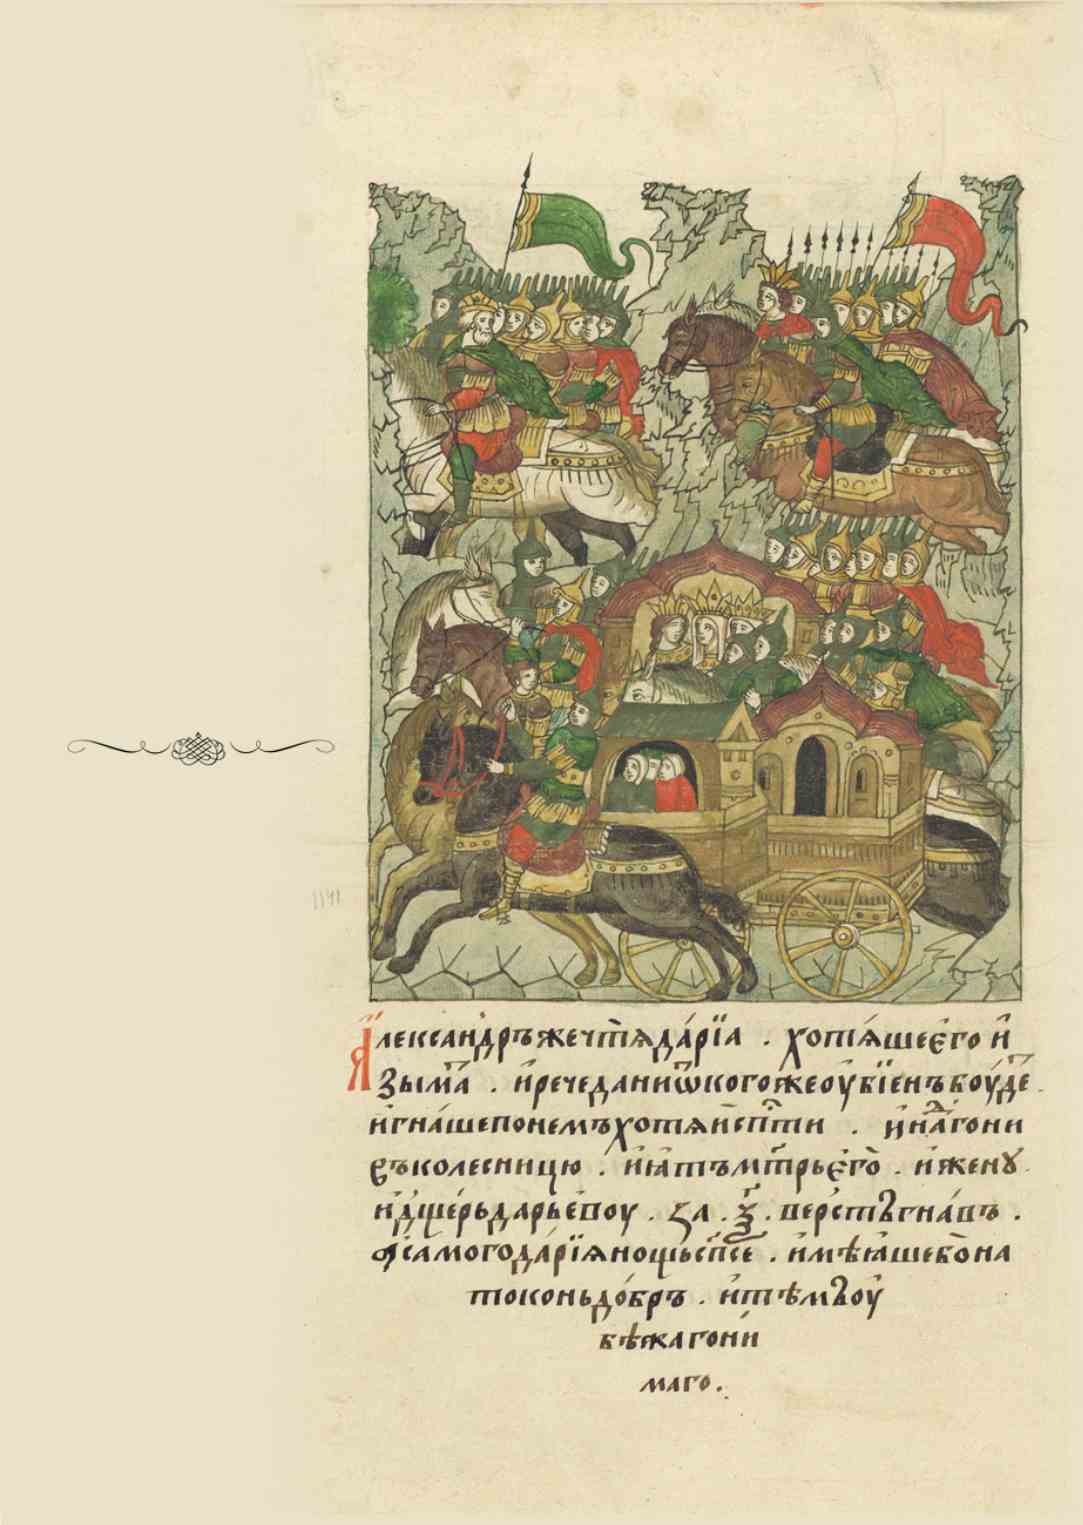 Александръжечтѧдарїа . хотѧшеегои
зыма . иречеданиѿкогожеоубїенъбоуде .
игнашепонемъхотѧиспти . инагони
въколесницю . иꙗтъмтрьего . иженꙋ .
идщерьдарьевоу . за . ѯ . верстъгнавъ .
асамогодарїѧнощьспсе . имѣꙗшебона
токоньдобръ . итѣмъоу
бѣжагони
маго .